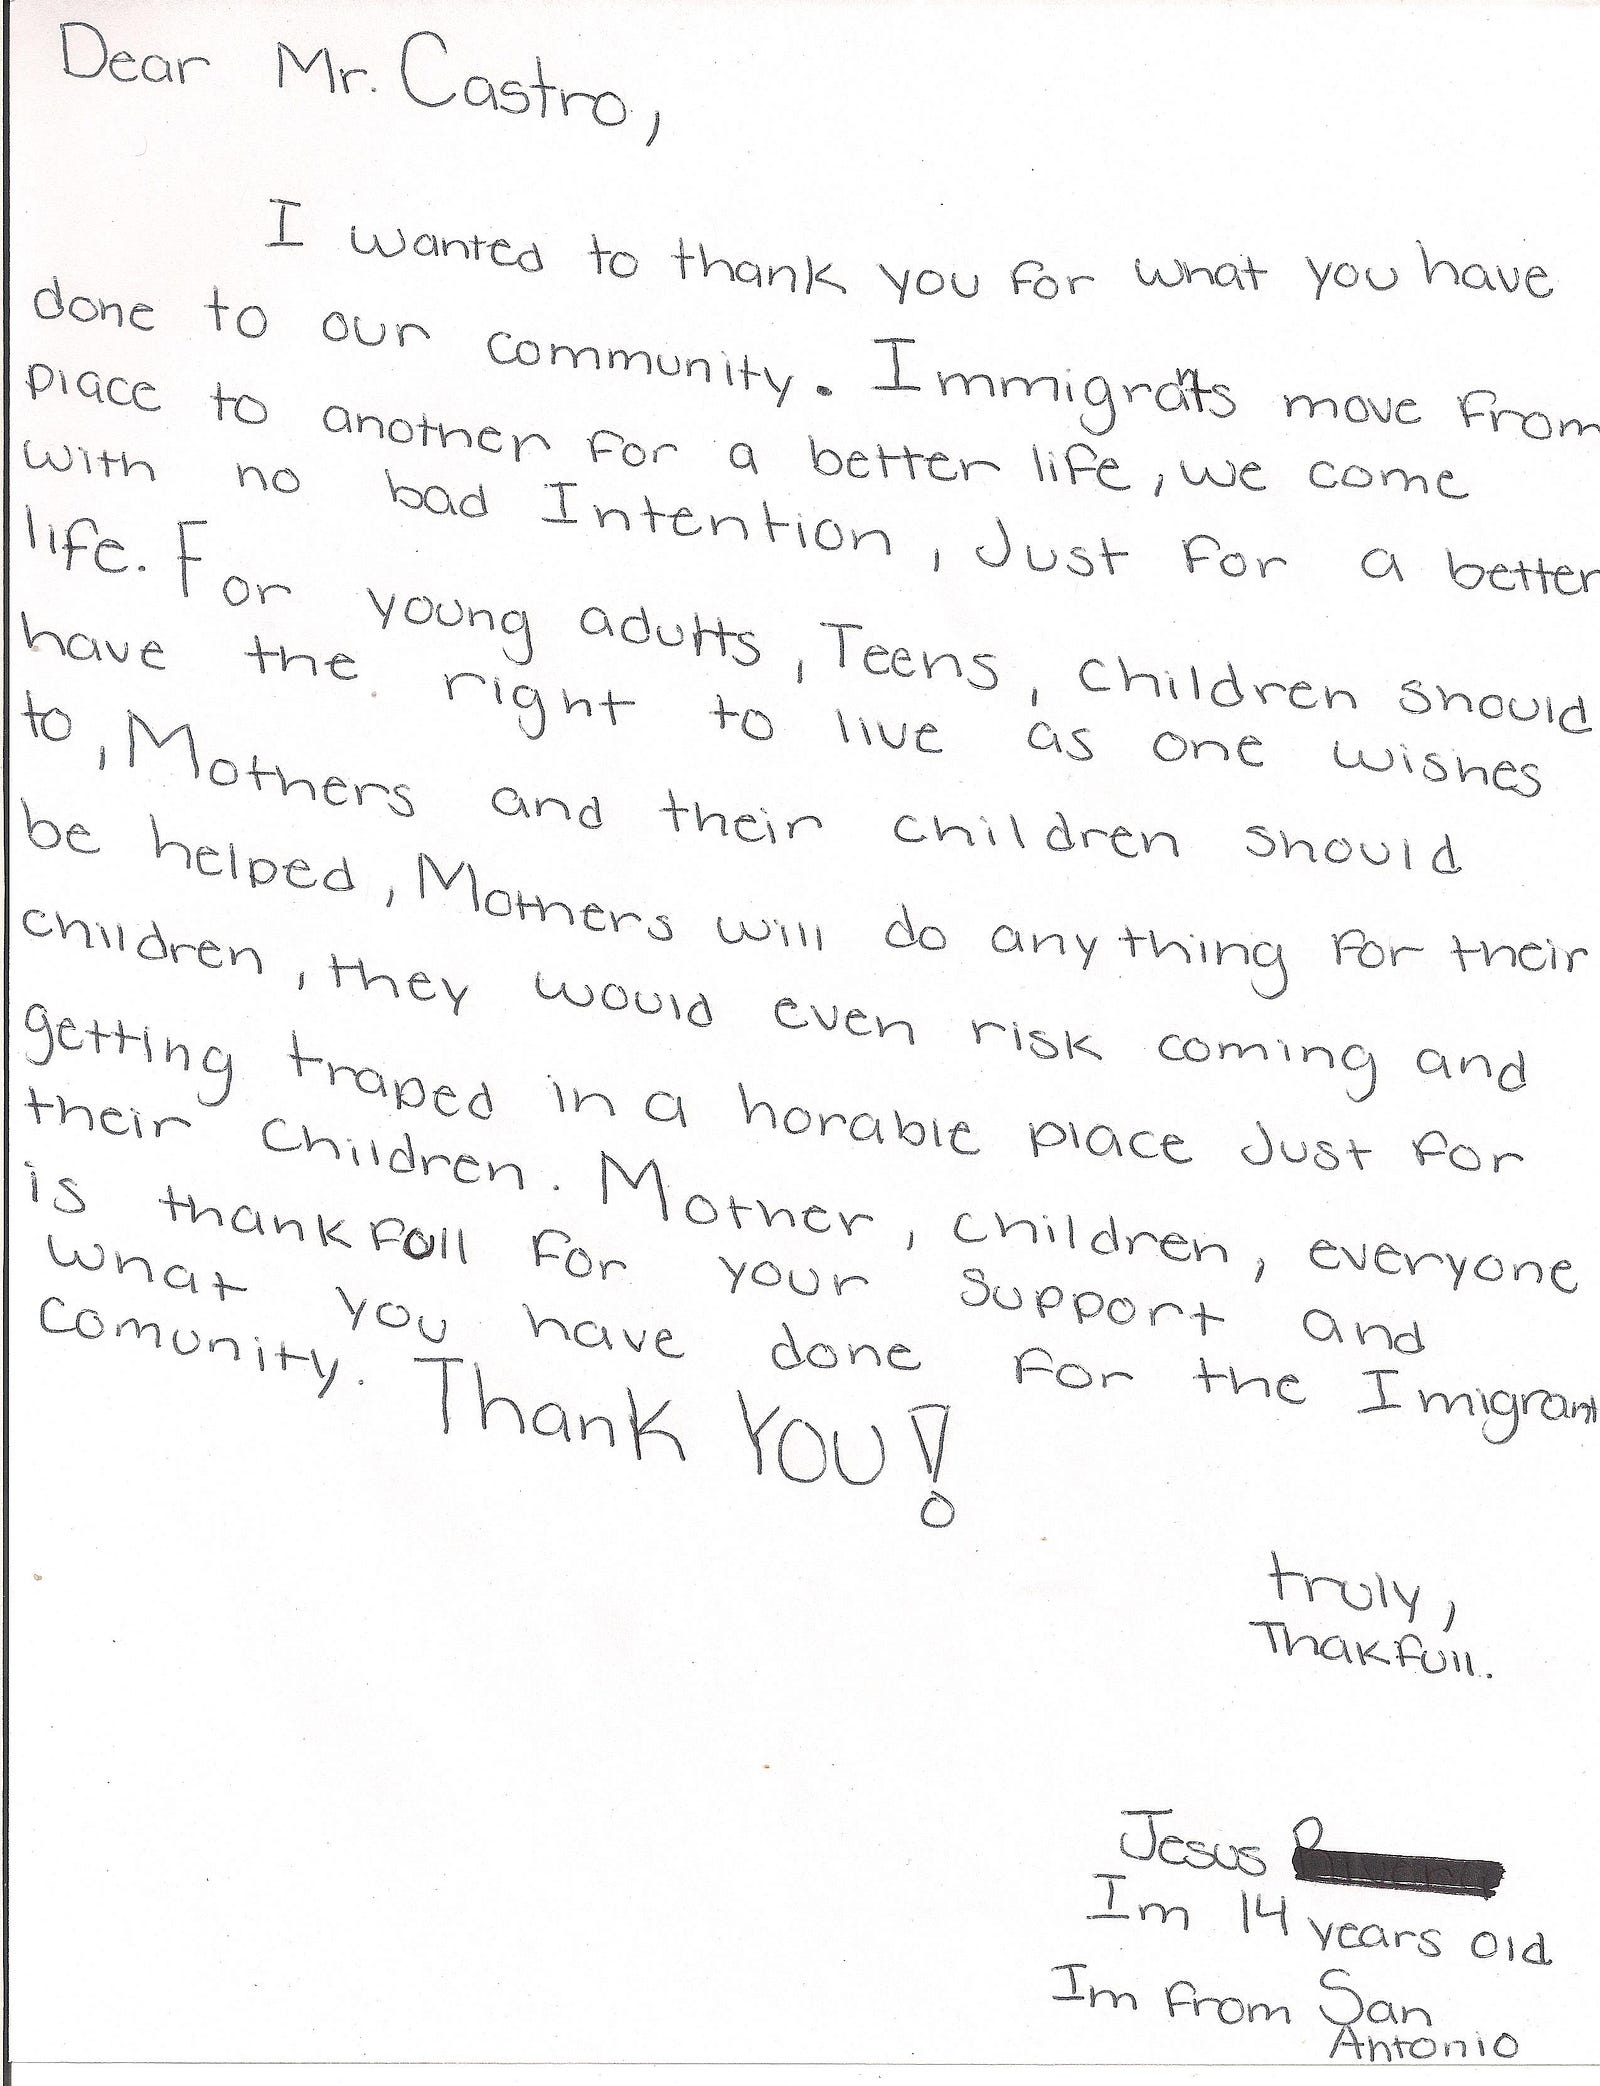 Dear Mr. Castro,
I wanted to thank you for what you have
done to our community. Immigrants move from
place to another for a better life, we come
with no bad Intention, Just for a better
life. For young adults, Teens, children should
have the right to live as one wishes
to, Mothers and their children should
be helped, Mothers will do anything for their
children, they would even risk coming and
getting traped in a horable place Just for
their children. Mother, children, everyone
is thankfull for your support and
what you have done for the Imigrant
comunity. Thank You!
truly,
Thakfull.
Jesus
Im 14 years old
Im from San
Antonio